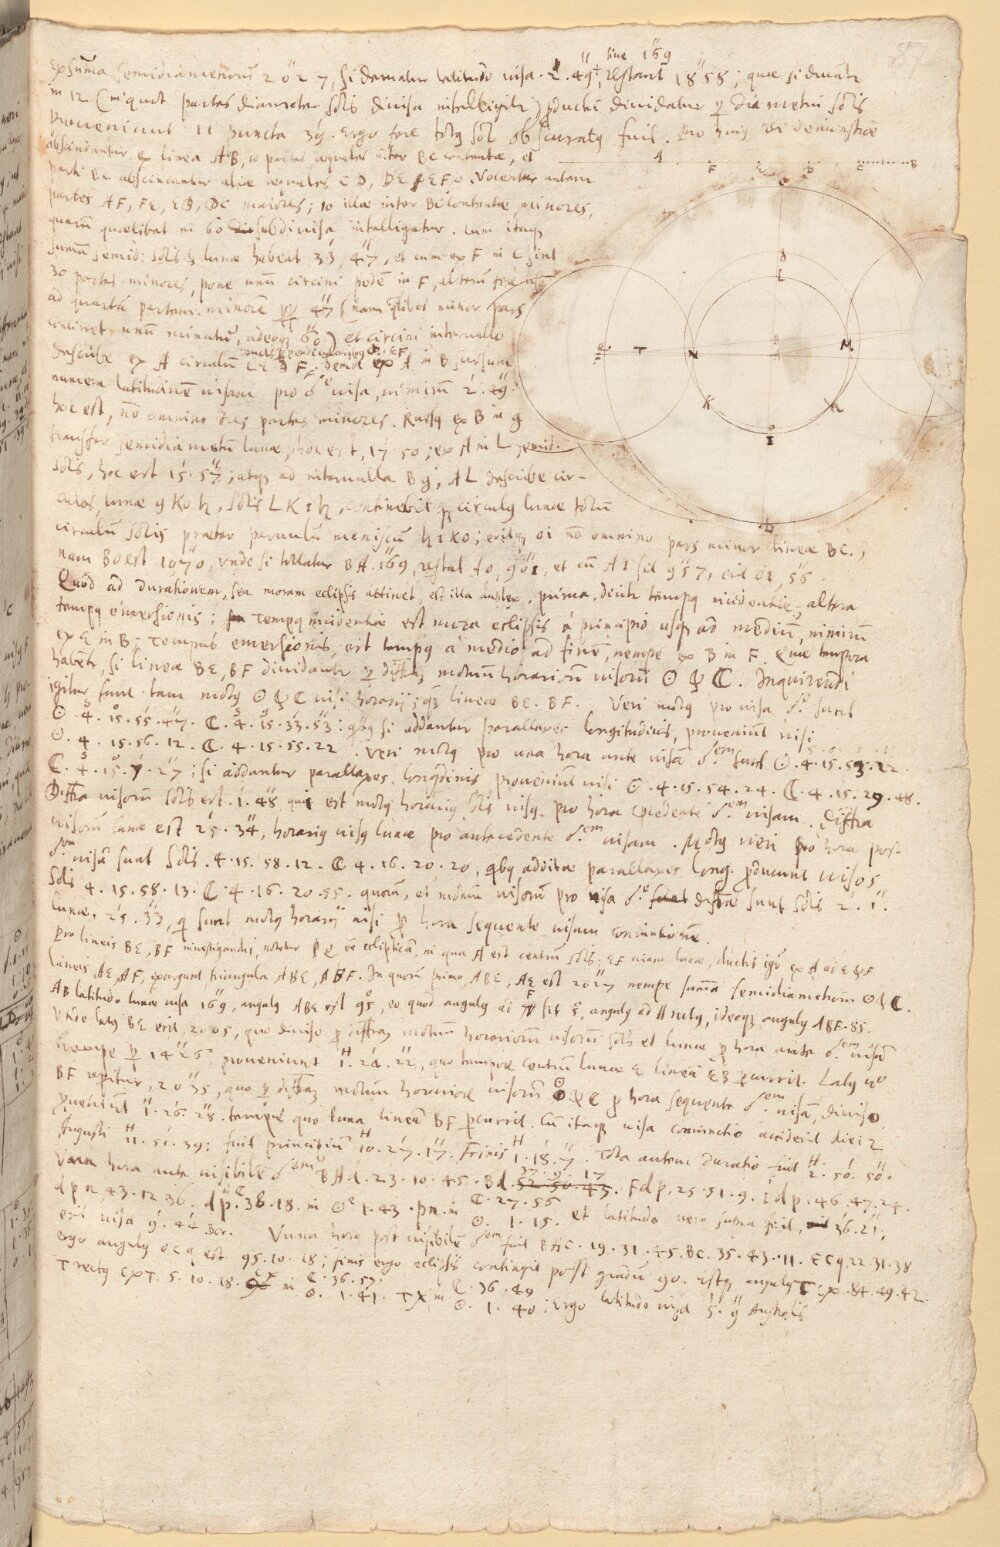 sive 169
Ex summa semidiametrorum 2027, si dematur latitudo visa 2. 49, restant 1858; quae si ducatur
in 12 (in quot partes diameter Solis divisa intelligitur) producti dividatur diametrum Solis
proveniunt 11 puncta 39. Ergo fere totus Sol obscuratus fuit.
abscindantur ex linea AB, 10 partes aequales inter BC contentae, et
parti BC abscindantur aliae aequales CD, DE, EF. Vocentur autem
partes AF, FE, ED, DC maiores; 10 illae inter BC contentae minores,
quarum quaelibet in 60 subdivisa intelligatur. Cum itaque
summa semid: Solis & lunae habeat 33 47, et cum ex F in C sint
30 partes minores, pone unum circini pedem in F, alterum
ad quartam partem minorem 47 (nam quaelibet minor pars
continet unum minutum, adeoque 60) et circini intervallo
describe ex A circulum CEDF. Deinde ex A in B sursum
numera latitudinem visam pro ☌ visa, nimirum 2. 49
hoc est, non omnino tres partes minores. Rursus ex B in g
transfer semidiametrum lunae, hoc est, 17 50; ex A in L semid:
Solis, hoc est 15. 57; atque ad intervalla Bg, AL describe cir-
culos, lunae gKoh, Solis LKIh, continebitque circulus lunae totum
circulum Solis praeter parvulum meniscum hIKo; eritque oI non omnino pars minor lineae BC.
nam Bo est 1070, unde si tollatur BA. 169, restat Ao, 901, et cum AI sit 957, erit oI, 56
Quod ad durationem, seu moram eclipsis attinet, est illa duplex, prima, dicitur tempus incidentiae, altera
tempus emersionis; Tempus incidentiae est mora eclipsis a principio usque ad medium, nimirum
ex E in B. Tempus emersionis, est tempus a medio ad finem, nempe ex B in F. Quae tempora
habentur, si lineae BE, BF dividantur differentiam motuum horariorum visorum ☉ & ☾. Inquirendi
igitur sunt tam motus ☉ & ☾ visi horarij; quam lineae BE. BF. Veri motus pro visa ☌ sunt
☉. 4. 15. 55. 47. ☾. 4. 15. 33. 53; quibus si addantur parallaxes longitudinis, proveniunt visi
☉. 4. 15. 56. 12. ☾. 4. 15. 55. 22. Veri motus pro una hora ante visam ☌ sunt ☉. 4. 15. 53. 22.
☾. 4. 15. 7. 27; si addantur parallaxes longitudinis proveniunt visi ☉. 4. 15. 54. 24. ☾. 4. 15. 29. 48.
Differentia visorum Solis est. 1. 48 qui est motus horarius Solis visus pro hora praecedente ☌ visam. Differentia
visorum lunae est 25. 34, horarius visus lunae pro antecedente ☌ visam. Motus veri pro hora post
☌ visam sunt Solis. 4. 15. 58. 12. ☾ 4. 16. 20. 20, quibus additae parallaxes long. producunt visos
Solis 4. 15. 58. 13. ☾. 4. 16. 20. 55. quorum, et motuum visorum pro visa ☌ differentiae sunt Solis 2. 1.
lunae, 25. 33, qui sunt motus horarij visi pro hora sequente visam coniunctionem.
Pro lineis BE, BF investigandis, notetur PQ esse eclipticam, in qua A est centrum Solis; EF viam lunae, ductis igitur ex A ad E & F
lineis AE, AF, exurgunt triangula ABE, ABF. In quorum primo ABE, AE est 2027 nempe summa semidiametrorum ☉ & ☾.
AB latitudo lunae visa 169, angulus ABE est 95, eo quod angulus ad F sit 5, angulus ad A rectus, ideoque angulus ABF. 85.
Unde latus BE erit, 2005, quo diviso differentiam motuum horariorum visorum Solis et lunae pro hora ante ☌ visam
nempe 1426 proveniunt 1. 24. 22, quo tempore centrum lunae lineam EB percurrit. Latus vero
BF reperitur, 2035, quo differentiam motuum horariorum visorum ☉ & ☾ pro hora sequente ☌ visam, diviso
proveniunt 1. 26. 28. tempus quo luna lineam BF percurrit. Cum itaque visa coniunctio acciderit diei 2
Augusti 11. 51. 39; fuit principium 10. 27. 17. Finis 1. 18. 7. Tota autem duratio fuit 2. 50. 50.
37. 9. 17
Una hora ante visibilem ☌ BAd. 23. 10. 45. Bd. 52. 50. 43. Fdp, 25. 51. 9. 46. 47. 24.
dpn. 43. 12. 36; dp. 38. 18. in ☉ 1. 43. pn. in ☾. 27. 56 ☉. 1. 15. et latitudo vera summa fuit, 36. 21;
erit visa 9. 44 bor. Una hora post visibilem ☌ fuit BHC. 19. 31. 45. BC. 35. 43. 11. ECq. 22. 31. 38
ergo angulus oCq est 95. 10. 18; finis ergo eclipsis contingit post gradum 90. estque angulus TCX. 84. 49. 42.
T rectus CXT. 5. 10. 18. CX in ☾. 36. 57; ☉. 1. 41. TX in ☾. 36. 49 ☉. 1. 40; Ergo latitudo visa 5. 9 Australis